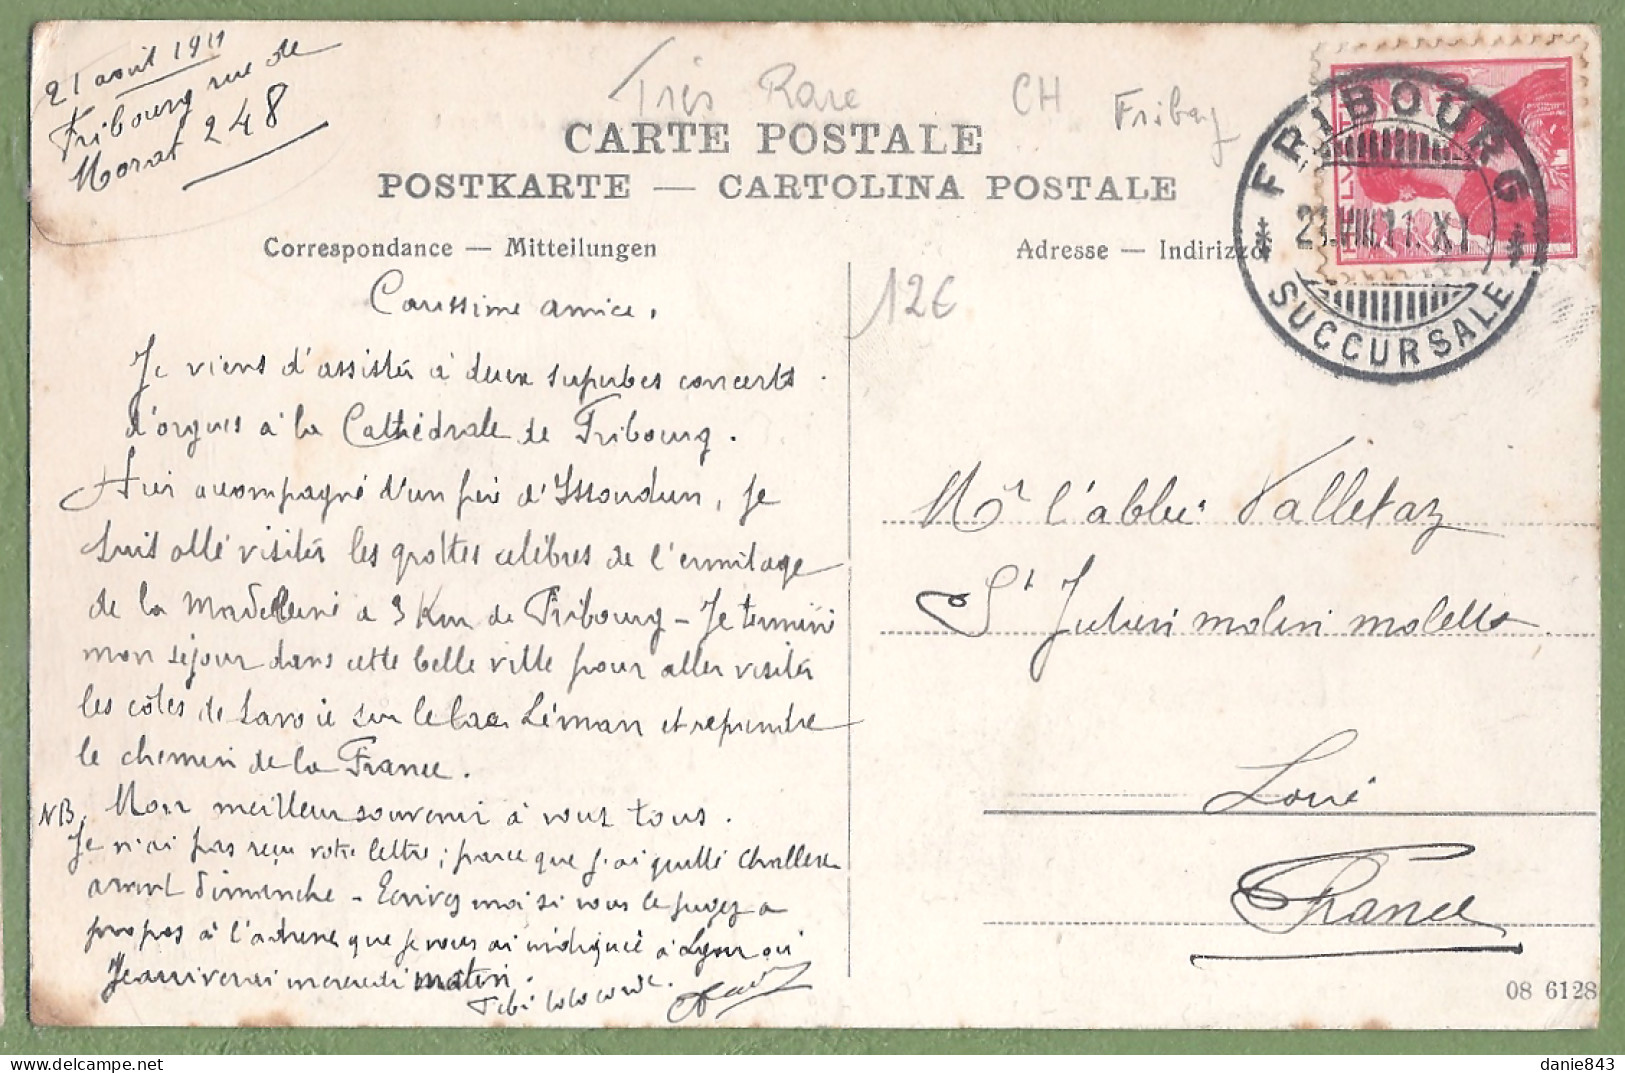 21 août 1911
Fribourg rue de
Morat 248
Très Rare
CH
Fribg
CARTE POSTALE
POSTKARTE — CARTOLINA POSTALE
Correspondance — Mitteilungen
Adresse — Indirizzo
FRIBOURG
21.VIII.11.XI
SUCCURSALE
12€
Carissime amice,
Je viens d'assister à deux superbes concerts
d'orgues à la Cathédrale de Fribourg.
Hier accompagné d'un père d'Issoudun, je
suis allé visiter les grottes celèbres de l'ermitage
de la Madeleine à 3 Km de Fribourg – Je termine
mon séjour dans cette belle ville pour aller visiter
les côtes de Savoie sur le lac Léman et reprendre
le chemin de la France.
Mon meilleur souvenir à vous tous.
NB. Je n'ai pas reçu votre lettre, parce que j'ai quitté
avant dimanche – Ecrivez moi si vous le jugez a
propos à l'adresse que je vous ai indiquée à Lyon où
J'arriverai mercredi matin.
Tibi toto corde.
Mr l'abbé Valletaz
St Julien molin molette
Loire
France
08 6128
danie843